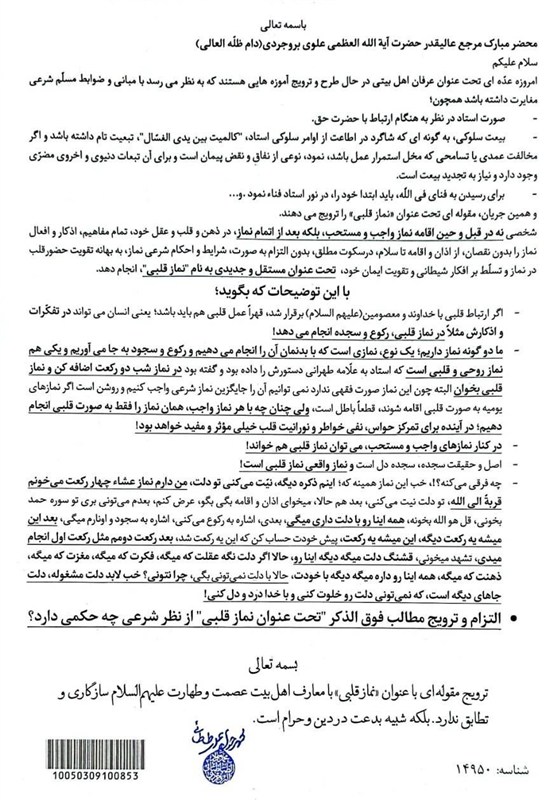 باسمه تعالی
محضر مبارک مرجع عالیقدر حضرت آیة الله العظمی علوی بروجردی(دام ظلّه العالی)
سلام علیکم
امروزه عدّه ای تحت عنوان عرفان اهل بیتی در حال طرح و ترویج آموزه هایی هستند که به نظر می رسد با مبانی و ضوابط مسلّم شرعی
مغایرت داشته باشد همچون؛
- صورت استاد در نظر به هنگام ارتباط با حضرت حق.
- بیعت سلوکی، به گونه ای که شاگرد در اطاعت از اوامر سلوکی استاد، "کالمیت بین یدی الغسّال"، تبعیت تام داشته باشد و اگر
مخالفت عمدی یا تسامحی که مخل استمرار عمل باشد، نمود، نوعی از نفاق و نقض پیمان است و برای آن تبعات دنیوی و اخروی مضرّی
وجود دارد و نیاز به تجدید بیعت است.
- برای رسیدن به فنای فی اللّه، باید ابتدا خود را، در نور استاد فناء نمود .و...
و همین جریان، مقوله ای تحت عنوان «نماز قلبی» را ترویج می دهند.
شخصی نه در قبل و حین اقامه نماز واجب و مستحب، بلکه بعد از اتمام نماز، در ذهن و قلب و عقل خود، تمام مفاهیم، اذکار و افعال
نماز را بدون نقصان، از اذان و اقامه تا سلام، درسکوت مطلق، بدون التزام به صورت، شرایط و احکام شرعی نماز، به بهانه تقویت حضورقلب
در نماز و تسلّط بر افکار شیطانی و تقویت ایمان خود، تحت عنوان مستقل و جدیدی به نام "نماز قلبی"، انجام دهد.
با این توضیحات که بگوید؛
- اگر ارتباط قلبی با خداوند و معصومین(علیهم السلام) برقرار شد، قهراً عمل قلبی هم باید باشد؛ یعنی انسان می تواند در تفکّرات
و اذکارش مثلاً در نماز قلبی، رکوع و سجده انجام می دهد!
- ما دو گونه نماز داریم؛ یک نوع، نمازی است که با بدنمان آن را انجام می دهیم و رکوع و سجود به جا می آوریم و یکی هم
نماز روحی و قلبی است که استاد به علّامه طهرانی دستورش را داده بود و گفته بود در نماز شب دو رکعت اضافه کن و نماز
قلبی بخوان البته چون این نماز صورت فقهی ندارد نمی توانیم آن را جایگزین نماز شرعی واجب کنیم و روشن است اگر نمازهای
یومیه به صورت قلبی اقامه شوند، قطعاً باطل است، ولی چنان چه با هر نماز واجب، همان نماز را فقط به صورت قلبی انجام
دهیم؛ در آینده برای تمرکز حواس، نفی خواطر و نورانیت قلب خیلی مؤثر و مفید خواهد بود!
- در کنار نمازهای واجب و مستحب، می توان نماز قلبی هم خواند!
- اصل و حقیقت سجده، سجده دل است و نماز واقعی نماز قلبی است!
- چه فرقی می‌کنه؟!، خب این نماز همینه که؛ اینم ذکره دیگه، نیّت می‌کنی تو دلت، من دارم نماز عشاء چهار رکعت می‌خونم
قربةً الی الله، تو دلت نیت می‌کنی، بعد هم حالا، میخوای اذان و اقامه بگی بگو، عرض کنم، بعدم می‌تونی بری تو سوره حمد
بخونی، قل هو الله بخونه، همه اینا رو با دلت داری میگی، بعدی، اشاره به رکوع می کنی، اشاره به سجود و اونارم میگی، بعد این
میشه یه رکعت دیگه، این میشه یه رکعت، پیش خودت حساب کن که این یه رکعت شد، بعد رکعت دومم مثل رکعت اول انجام
میدی، تشهد میخونی، قشنگ دلت میگه دیگه اینا رو، حالا اگر دلت نگه عقلت که میگه، فکرت که میگه، مغزت که میگه،
ذهنت که میگه، همه اینا رو داره میگه دیگه با خودت، حالا با دلت نمی‌تونی بگی، چرا نتونی؟ خب لابد دلت مشغوله، دلت
جاهای دیگه است، که نمی‌تونی دلت رو خلوت کنی و با خدا درد و دل کنی!
• التزام و ترویج مطالب فوق الذکر "تحت عنوان نماز قلبی" از نظر شرعی چه حکمی دارد؟
بسمه تعالی
ترویج مقوله‌ای با عنوان «نماز قلبی» با معارف اهل بیت عصمت و طهارت علیهم السلام سازگاری و
تطابق ندارد. بلکه شبیه به بدعت در دین و حرام است.
10050309100853
شناسه: ۱۴۹۵۰